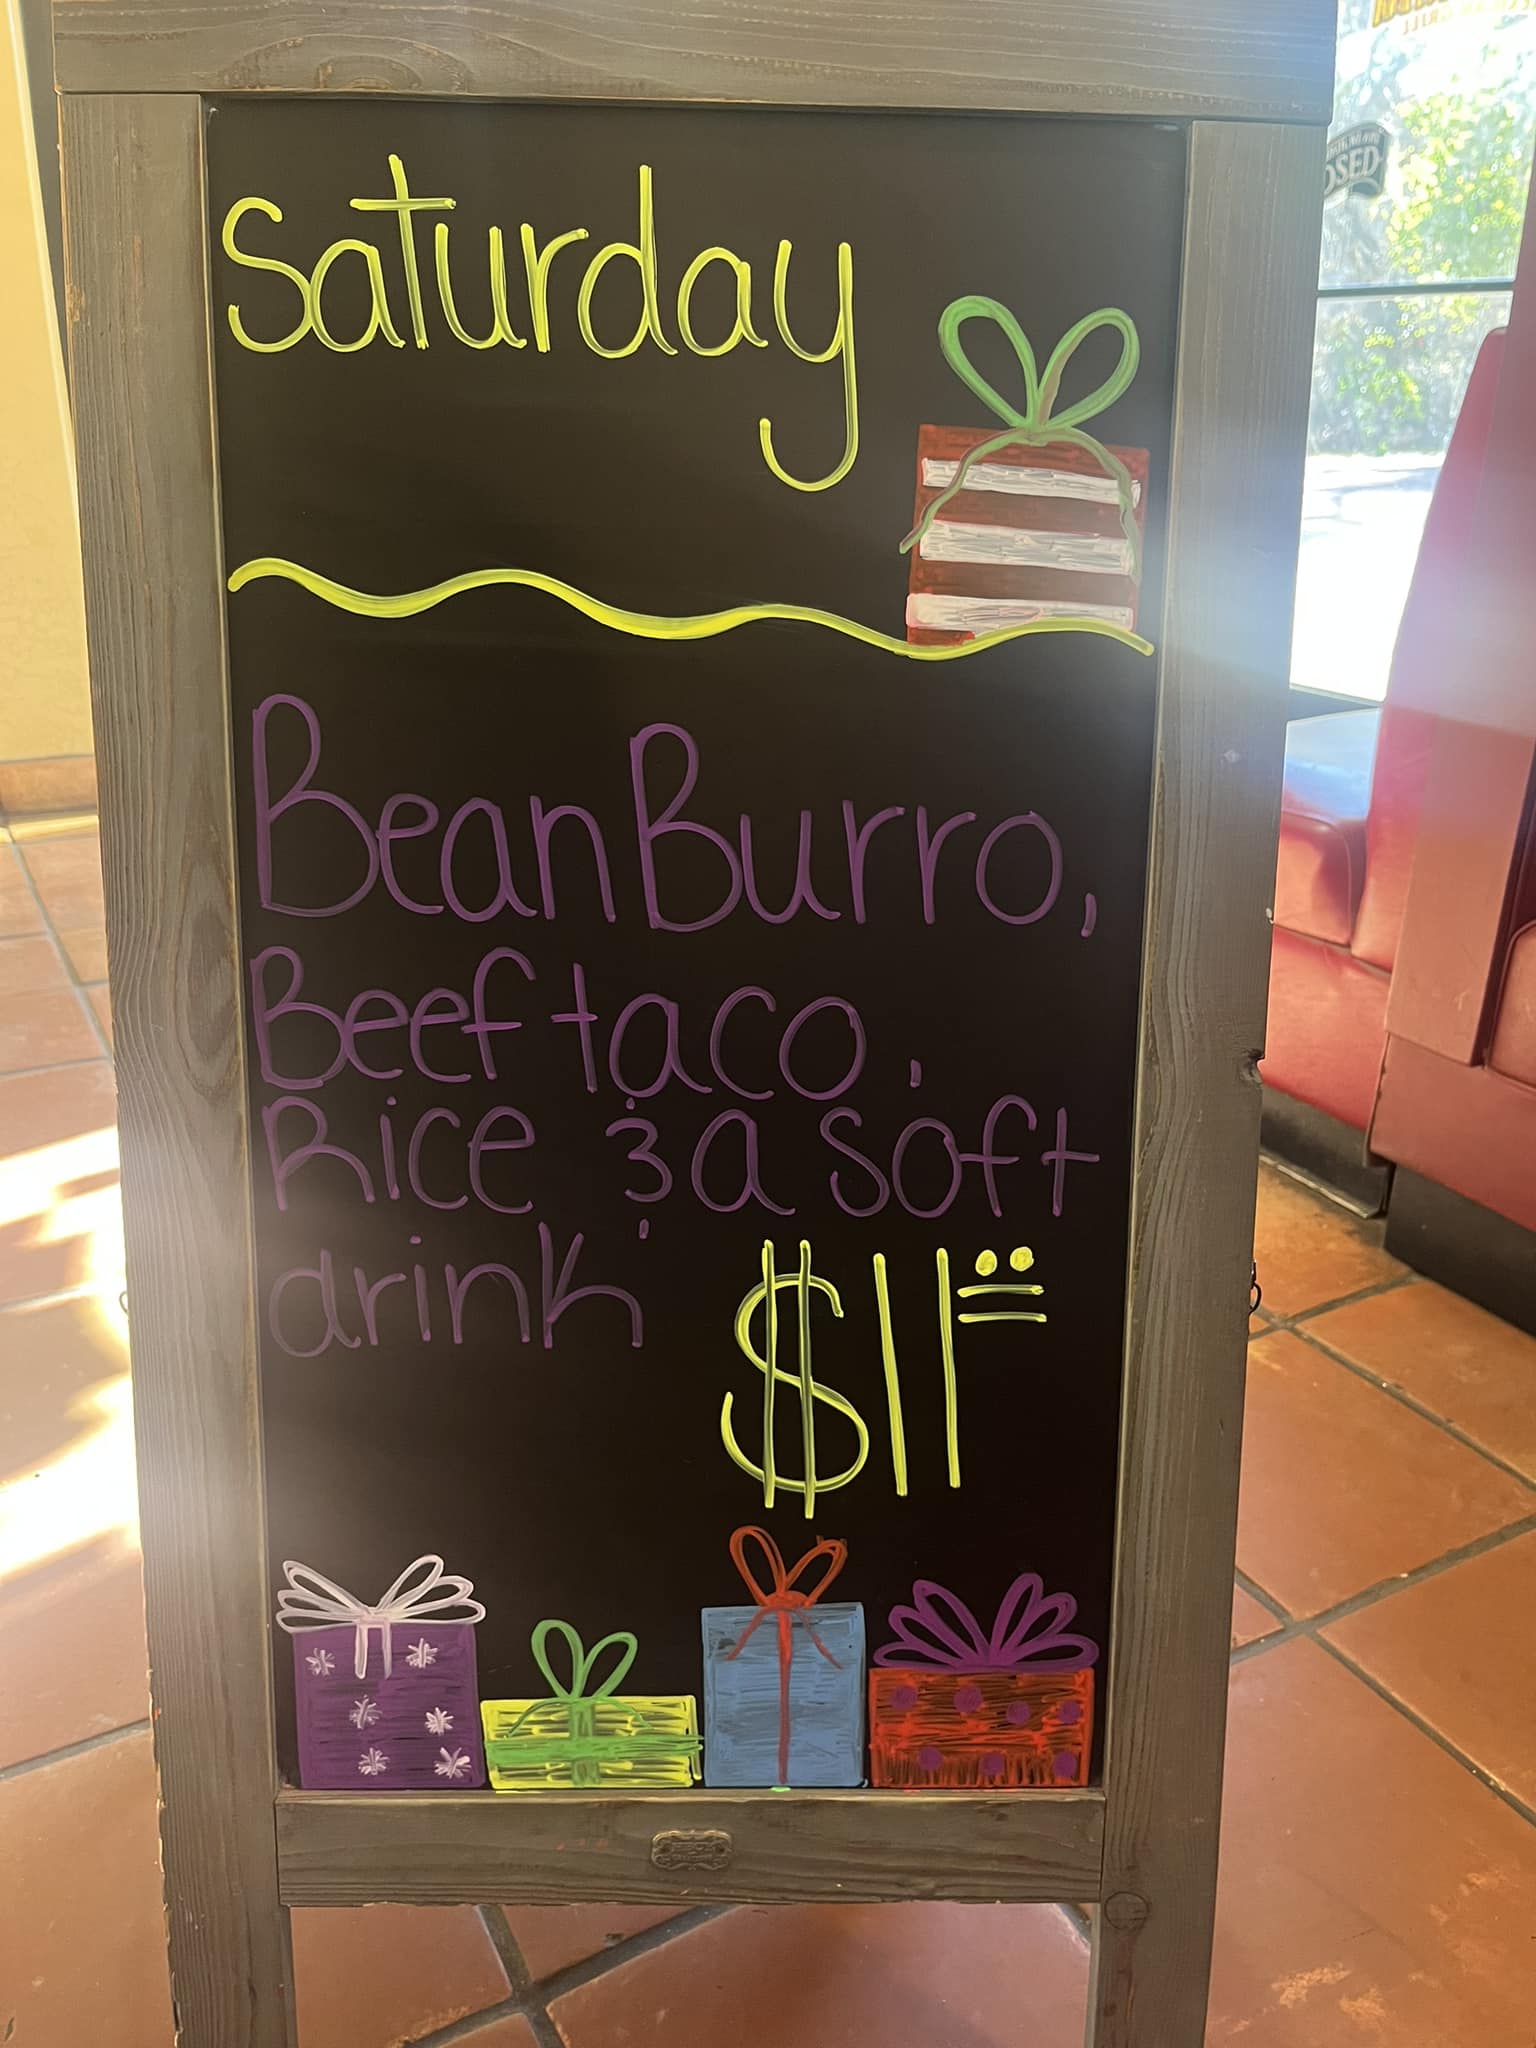 Saturday
Bean Burro,
Beef taco,
Rice & a soft
drink $11